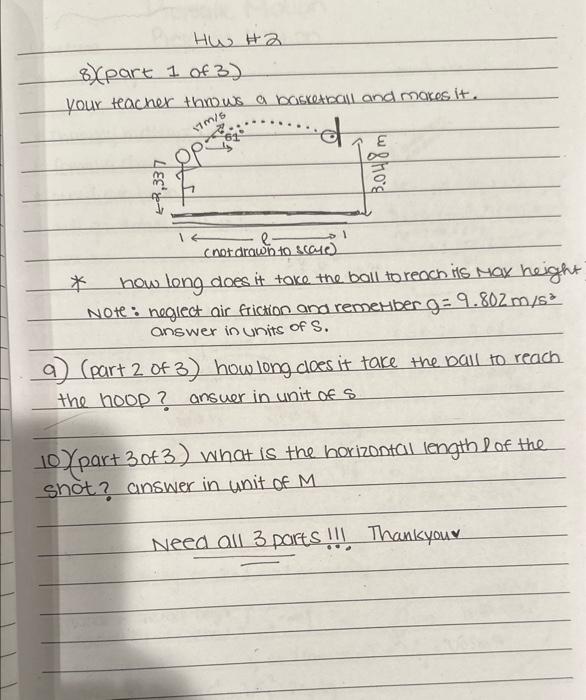 HW #2
8)(part 1 of 3)
your teacher throws a basketball and makes it.
17m/s
61°
2.337
3.048 m
l
(not drawn to scale)
* how long does it take the ball to reach its max height
Note: neglect air friction and remember g= 9.802m/s²
answer in units of S.
9) (part 2 of 3) how long does it take the ball to reach
the hoop? answer in unit of s
10)(part 3 of 3) what is the horizontal length l of the
shot? answer in unit of M
Need all 3 parts!!! Thankyou♥